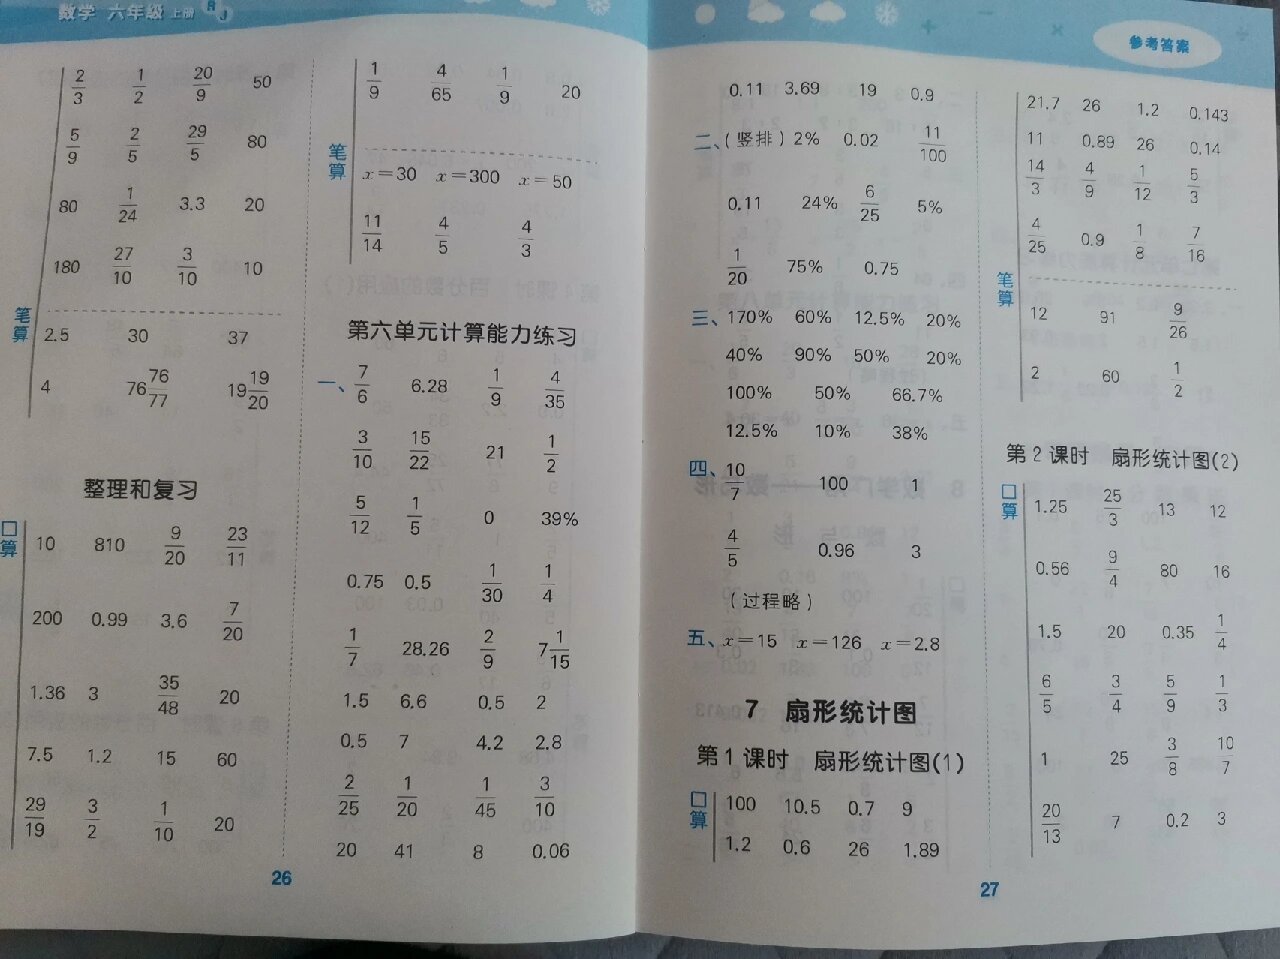 数学 六年级 上册 RJ
2/3 1/2 20/9 50
5/9 2/5 29/5 80
80 1/24 3.3 20
180 27/10 3/10 10
笔算
2.5 30 37
4 76 76/77 19 19/20
整理和复习
口算
10 810 9/20 23/11
200 0.99 3.6 7/20
1.36 3 35/48 20
7.5 1.2 15 60
29/19 3/2 1/10 20
1/9 4/65 1/9 20
笔算
x=30 x=300 x=50
11/14 4/5 4/3
第六单元计算能力练习
一、 7/6 6.28 1/9 4/35
3/10 15/22 21 1/2
5/12 1/5 0 39%
0.75 0.5 1/30 1/4
1/7 28.26 2/9 7 1/15
1.5 6.6 0.5 2
0.5 7 4.2 2.8
2/25 1/20 1/45 3/10
20 41 8 0.06
26
参考答案
0.11 3.69 19 0.9
二、(竖排) 2% 0.02 11/100
0.11 24% 6/25 5%
1/20 75% 0.75
三、 170% 60% 12.5% 20%
40% 90% 50% 20%
100% 50% 66.7%
12.5% 10% 38%
四、 10/7 100 1
4/5 0.96 3
(过程略)
五、 x=15 x=126 x=2.8
7 扇形统计图
第1课时 扇形统计图(1)
口算
100 10.5 0.7 9
1.2 0.6 26 1.89
21.7 26 1.2 0.143
11 0.89 26 0.14
14/3 4/9 1/12 5/3
4/25 0.9 1/8 7/16
笔算
12 91 9/26
2 60 1/2
第2课时 扇形统计图(2)
口算
1.25 25/3 13 12
0.56 9/4 80 16
1.5 20 0.35 1/4
6/5 3/4 5/9 1/3
1 25 3/8 10/7
20/13 7 0.2 3
27